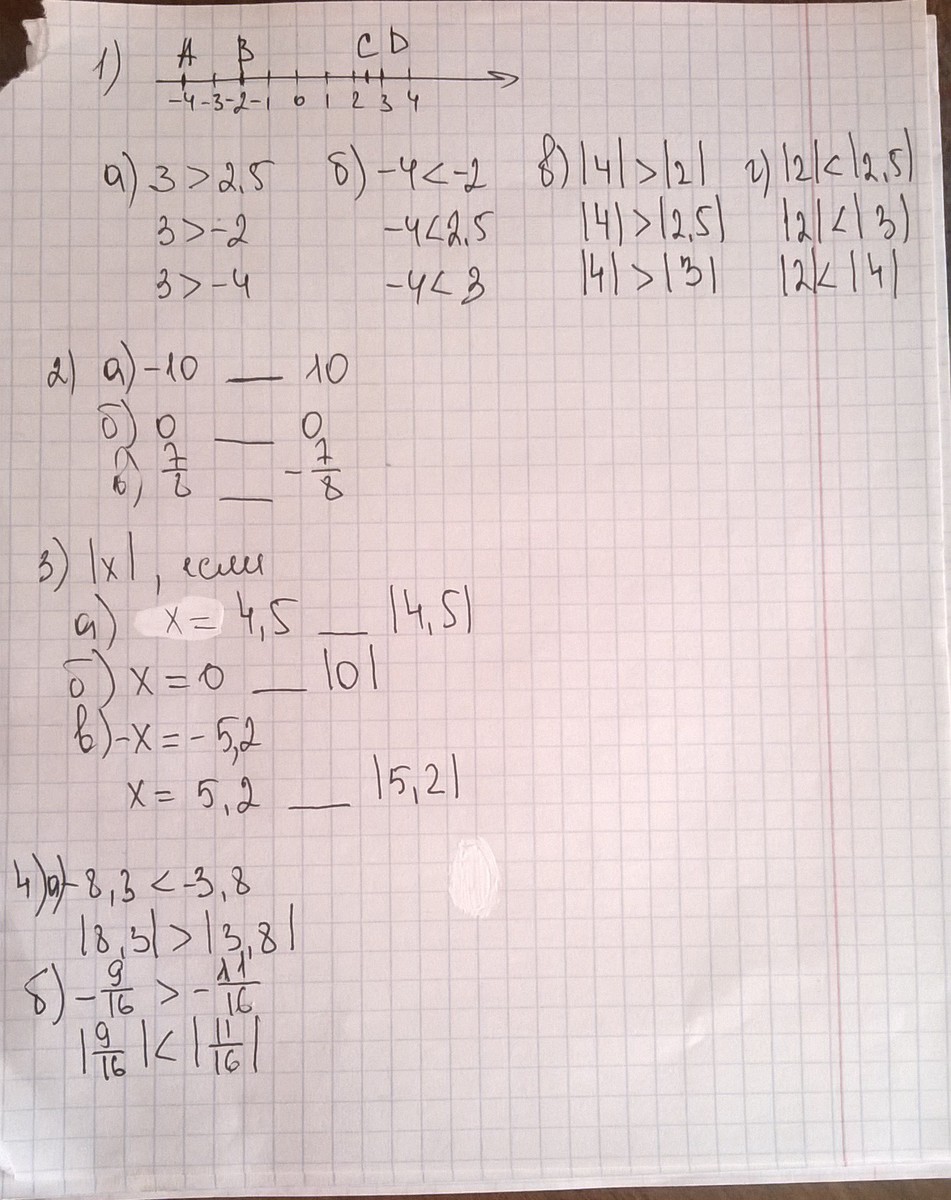 1) A B C D
-4 -3 -2 -1 0 1 2 3 4
а) 3 > 2,5 б) -4 < -2 в) |4| > |2| г) |2| < |2,5|
3 > -2 -4 < 2,5 |4| > |2,5| |2| < |3|
3 > -4 -4 < 3 |4| > |3| |2| < |4|
2) а) -10 __ 10
б) 0 __ 0
в) 7/8 __ -7/8
3) |x|, если
а) x = 4,5 __ |4,5|
б) x = 0 __ |0|
в) -x = -5,2
x = 5,2 __ |5,2|
4) а) -8,3 < -3,8
|8,3| > |3,8|
б) -9/16 > -11/16
|9/16| < |11/16|